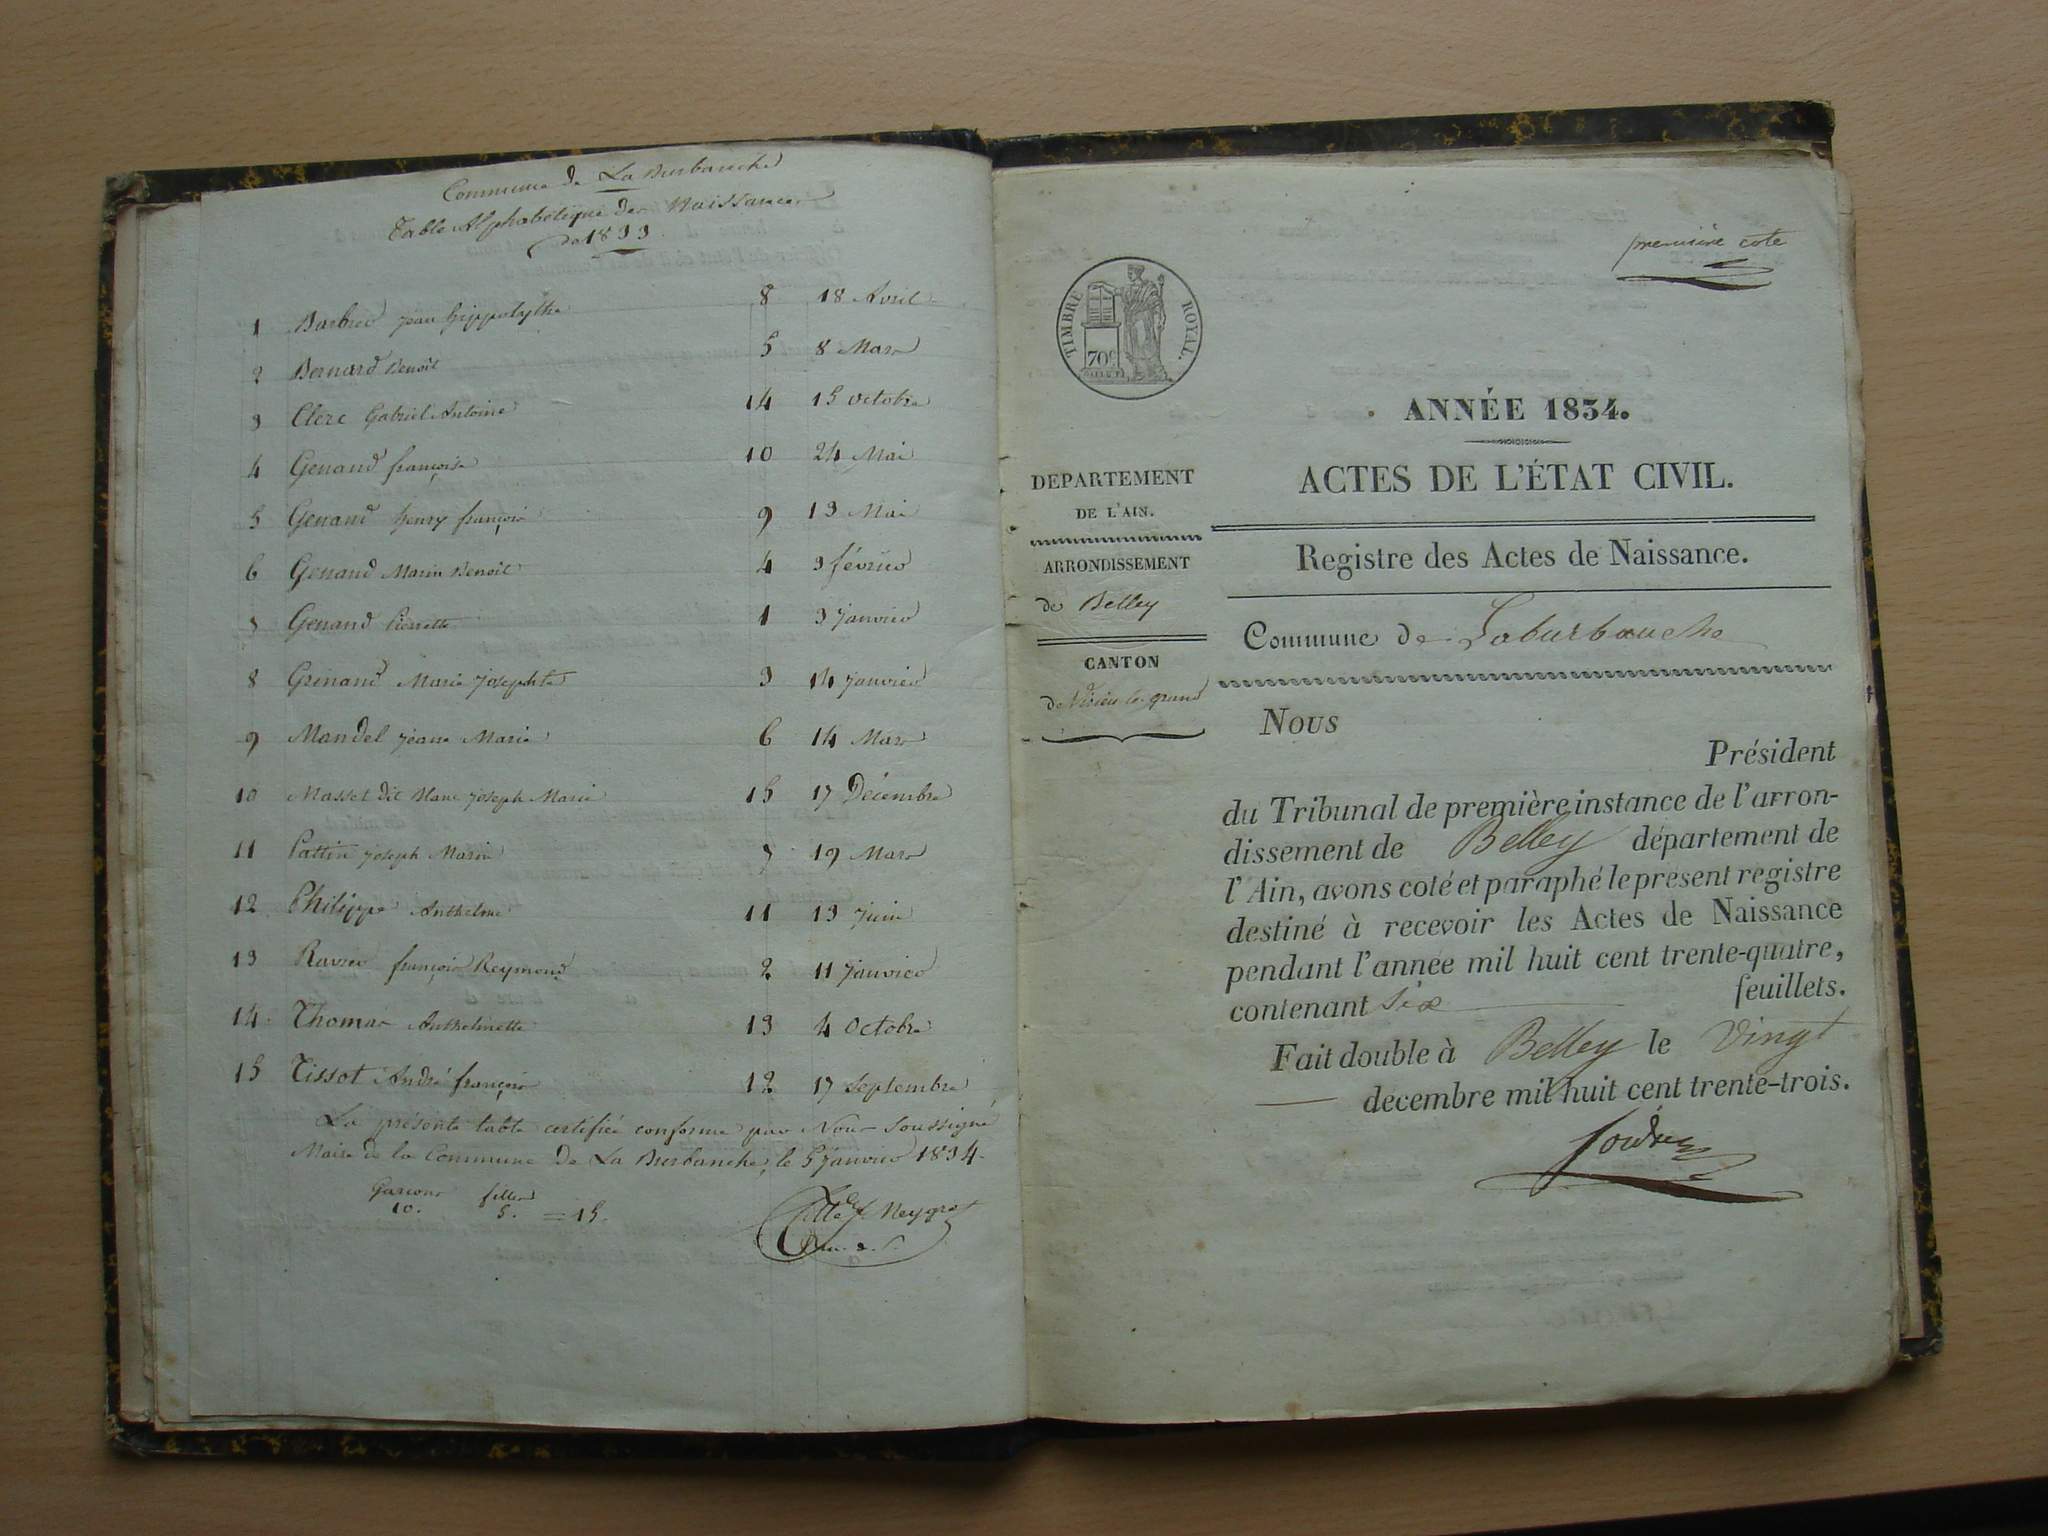 Commune de La Burbanche
Table Alphabétique des Naissances
de 1833
1 Barbier jean hippolythe 8 18 Avril
2 Bernard Benoît 5 8 Mars
3 Clerc Gabriel Antoine 14 15 octobre
4 Genand françoise 10 24 Mai
5 Genand henry françois 9 13 Mai
6 Genand Marin Benoît 4 3 février
7 Genand Pierrette 1 3 janvier
8 Grinand Marie josephte 3 14 janvier
9 Mandel jeane Marie 6 14 Mars
10 Masset dit Blanc joseph Marie 15 17 Décembre
11 Pattin joseph Marin 7 19 Mars
12 Philippe Anthelme 11 13 juin
13 Ravier françois Reymond 2 11 janvier
14 Thomas Anthelmette 13 4 Octobre
15 Tissot André françois 12 17 Septembre
La présente table certifiée conforme par Nous Soussigné
Maire de la Commune de La Burbanche, le 5 janvier 1834.
Garcons filles
10. 5. = 15.
Neyret
première cote
TIMBRE ROYAL.
70c
ANNÉE 1834.
ACTES DE L'ÉTAT CIVIL.
DEPARTEMENT
DE L'AIN.
ARRONDISSEMENT
de Belley
CANTON
de Virieu le grand
Registre des Actes de Naissance.
Commune de Laburbanche
Nous
Président
du Tribunal de première instance de l'arron-
dissement de Belley département de
l'Ain, avons coté et paraphé le présent registre
destiné à recevoir les Actes de Naissance
pendant l'année mil huit cent trente-quatre,
contenant six feuillets.
Fait double à Belley le Vingt
décembre mil huit cent trente-trois.